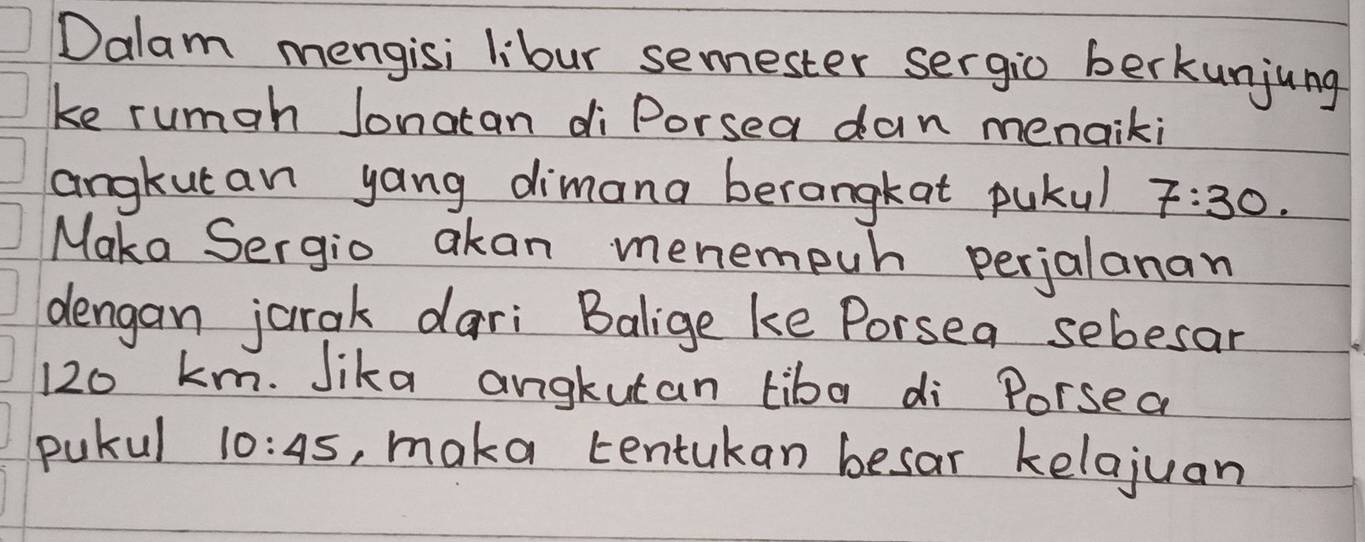 Dalam mengisi libur semester sergio berkunjung
ke rumah Jonatan di Porsea dan menaiki
angkutan yang dimana berangkat pukul 7:30.
Maka Sergio akan menempuh perjalanan
dengan jarak dari Balige ke Porsea sebesar
120 km. Jika angkutan tiba di Porsea
pukul 10:45, maka tentukan besar kelajuan